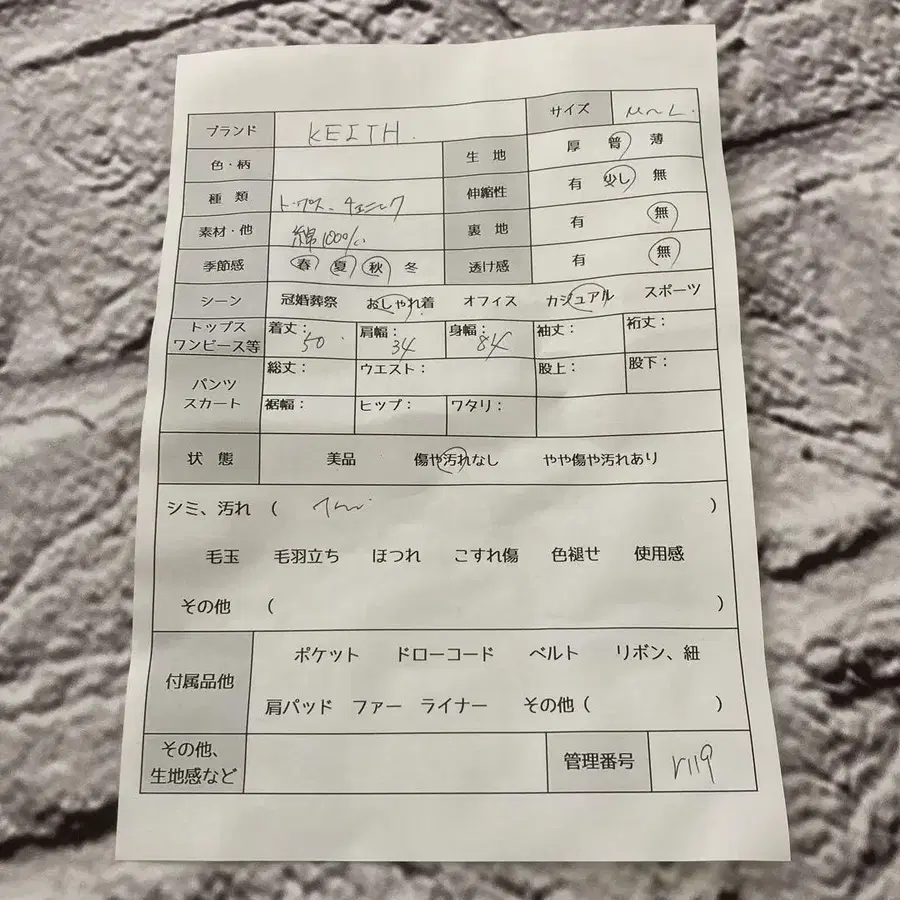 ブランド KEITH. サイズ M〜L.
色・柄 生地 厚 普 薄
種類 トップス、チュニック 伸縮性 有 少し 無
素材・他 綿100% 裏地 有 無
季節感 春 夏 秋 冬 透け感 有 無
シーン 冠婚葬祭 おしゃれ着 オフィス カジュアル スポーツ
トップス
ワンピース等 着丈：50 肩幅：34 身幅：84 袖丈： 裄丈：
パンツ
スカート 総丈： ウエスト： 股上： 股下：
裾幅： ヒップ： ワタリ：
状態 美品 傷や汚れなし やや傷や汚れあり
シミ、汚れ （ ）
毛玉 毛羽立ち ほつれ こすれ傷 色褪せ 使用感
その他 （ ）
付属品他 ポケット ドローコード ベルト リボン、紐
肩パッド ファー ライナー その他（ ）
その他、
生地感など 管理番号 r119